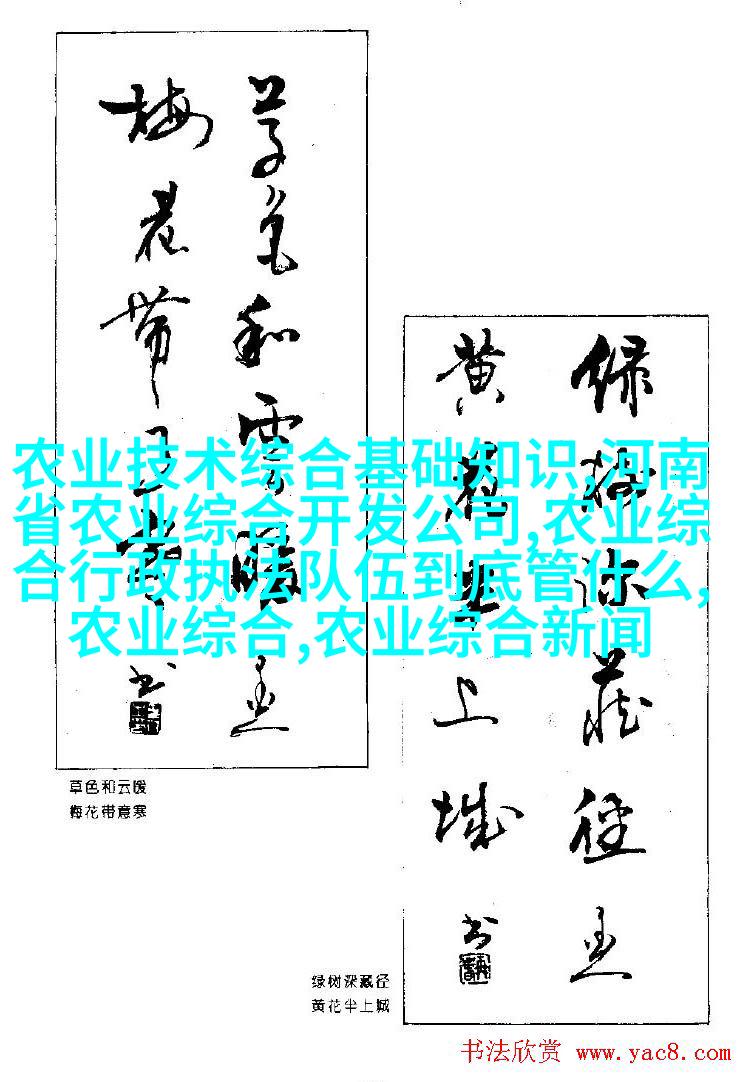 梅花带意寒
草色和雲暖
黄花半上城
绿树深藏径
农业技术综合基础知识,河南
省农业综合开发公司,农业综
合行政执法队伍到底管什么,
农业综合,农业综合新闻
草色和云暖
梅花带意寒
绿树深藏径
黄花半上城
书法欣赏 www.yac8.com